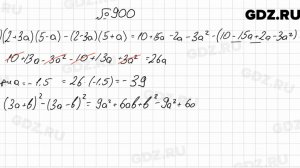 GDZ.RU
№ 900
(2+3a)(5-a) - (2-3a)(5+a) = 10+15a-2a-3a² - (10-15a+2a-3a²)
10+13a-3a²-10+13a+3a²=26a
при a=-1.5 = 26·(-1.5) = -39
(3a+b)² - (3a-b)² = 9a² + 6ab+b² - 9a² + 6a